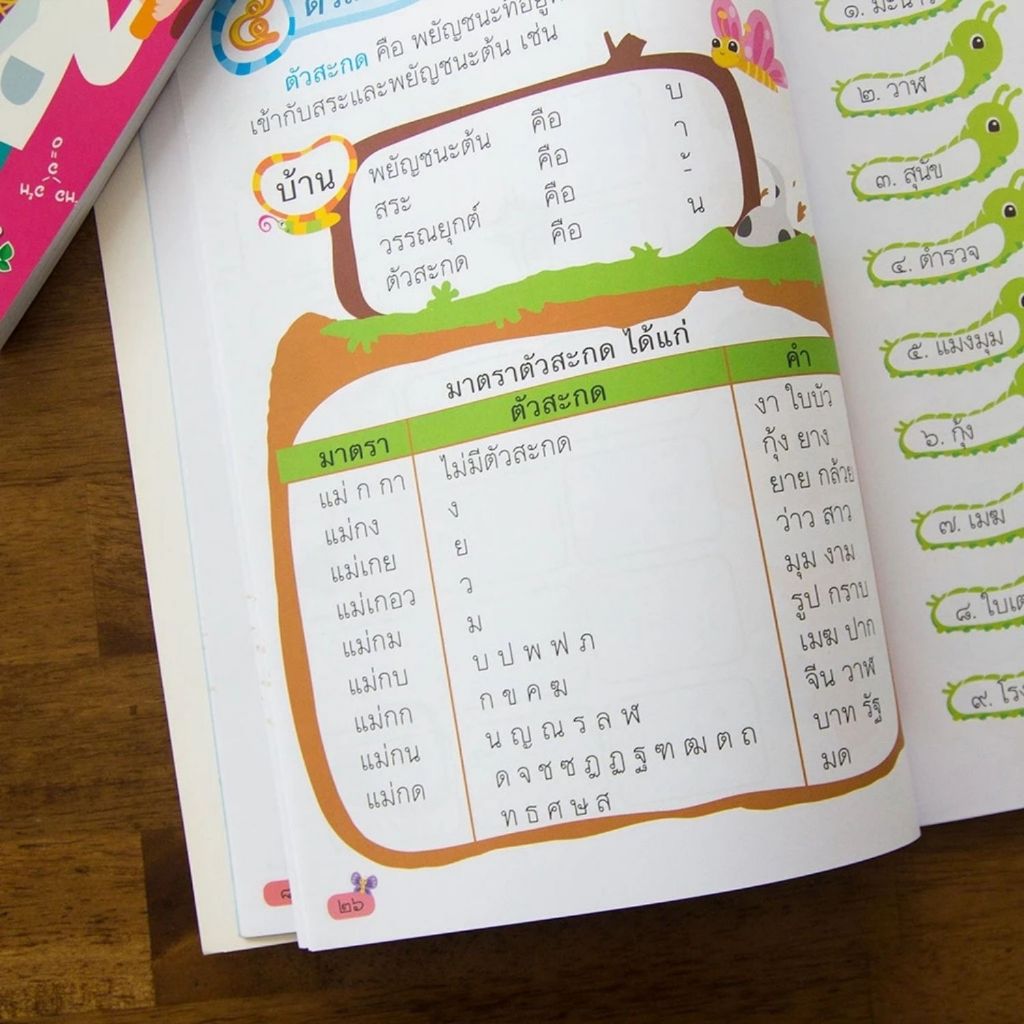 ๕
ตัวสะกด คือ พยัญชนะที่อยู่
เข้ากับสระและพยัญชนะต้น เช่น
บ้าน
พยัญชนะต้น คือ บ
สระ คือ า
วรรณยุกต์ คือ ้
ตัวสะกด คือ น
มาตราตัวสะกด ได้แก่
มาตรา ตัวสะกด คำ
แม่ ก กา ไม่มีตัวสะกด งา ใบบัว
แม่กง ง กุ้ง ยาง
แม่เกย ย ยาย กล้วย
แม่เกอว ว ว่าว สาว
แม่กม ม มุม งาม
แม่กบ บ ป พ ฟ ภ รูป กราบ
แม่กก ก ข ค ฆ เมฆ ปาก
แม่กน น ญ ณ ร ล ฬ จีน วาฬ
แม่กด ด จ ช ซ ฎ ฏ ฐ ฑ ฒ ต ถ บาท รัฐ
ท ธ ศ ษ ส มด
๒๖
๘
๑. มะนาว
๒. วาฬ
๓. สุนัข
๔. ตำรวจ
๕. แมงมุม
๖. กุ้ง
๗. เมฆ
๘. ใบเต
๙. โรง
O
C
H₃C CH